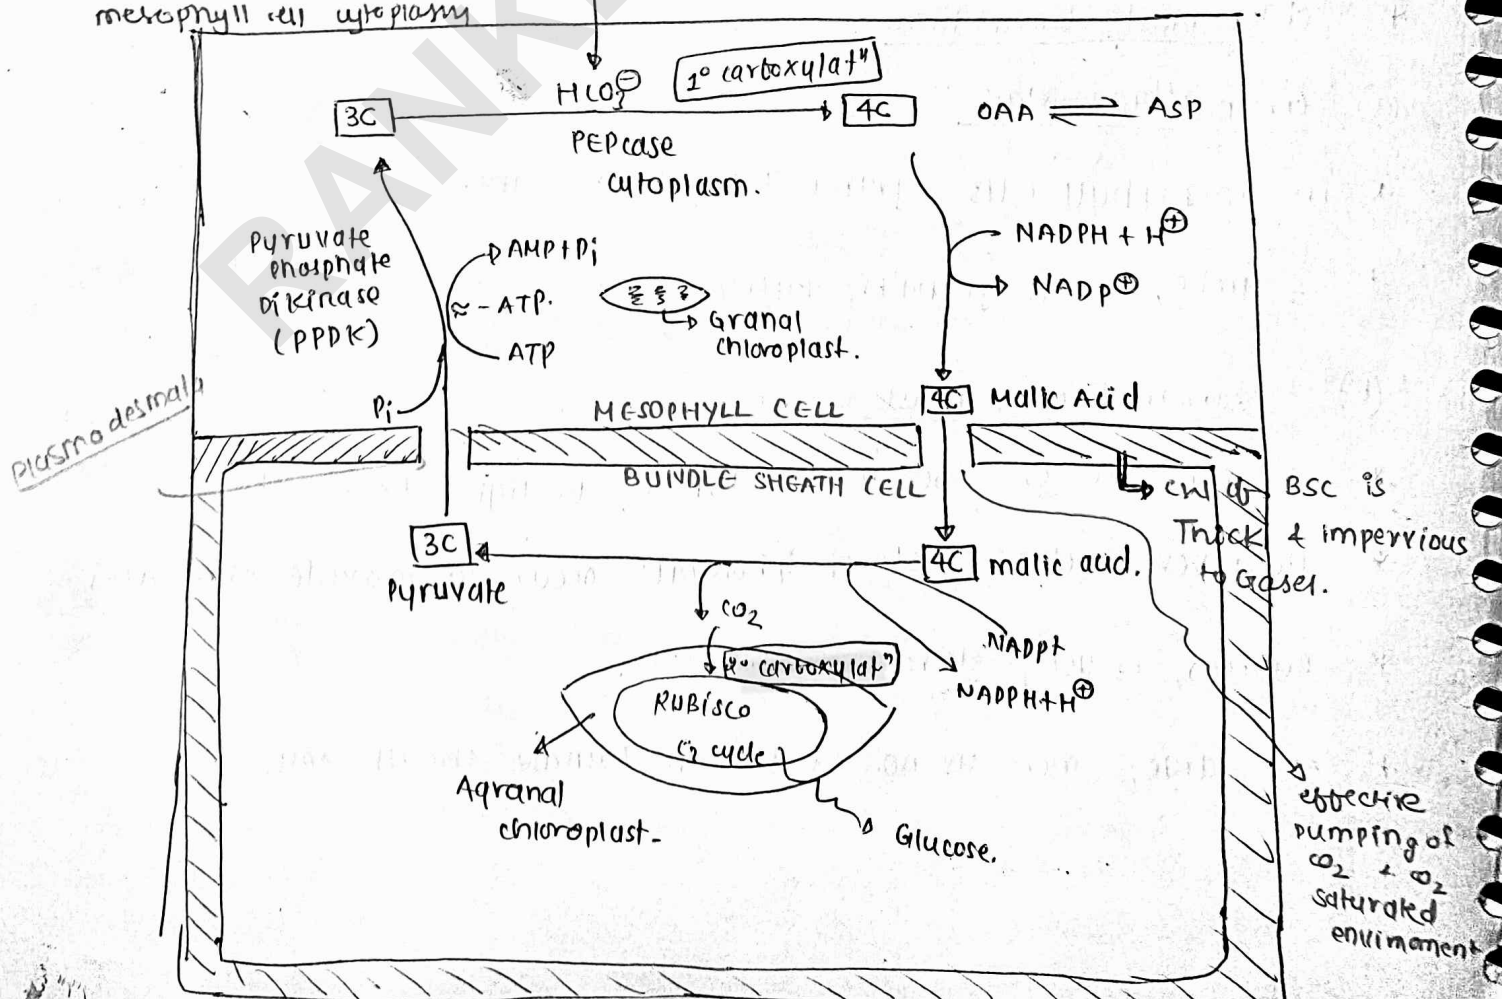 mesophyll cell cytoplasm
RANK
HCO₃⊖
1° carboxylatⁿ
3C
4C
OAA ⇌ ASP
PEPcase
cytoplasm.
Pyruvate
phosphate
Dikinase
(PPDK)
AMP+Pi
≈ - ATP.
ATP
Pi
Granal
chloroplast.
NADPH + H⊕
NADP⊕
4C Malic Acid
MESOPHYLL CELL
plasmodesmata
BUNDLE SHEATH CELL
CW of BSC is
Thick & impervious
to Gases.
3C
Pyruvate
4C malic acid.
CO₂
NADP+
NADPH+H⊕
2° carboxylatⁿ
RUBISCO
C₃ cycle
Agranal
chloroplast-
Glucose.
effective
pumping of
CO₂ & CO₂
saturated
environment